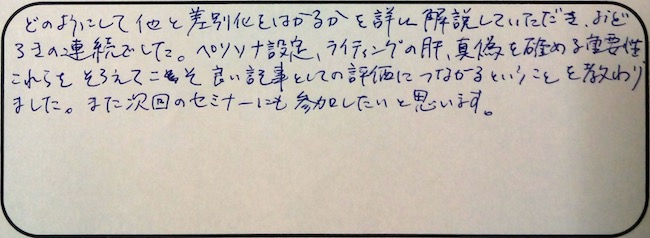 どのようにして他と差別化をはかるかを詳しく解説していただき、おど
ろきの連続でした。ペルソナ設定、ライティングの肝、真偽を確める重要性
これらをそろえてこそ良い記事としての評価につながるということを教わり
ました。また次回のセミナーにも参加したいと思います。